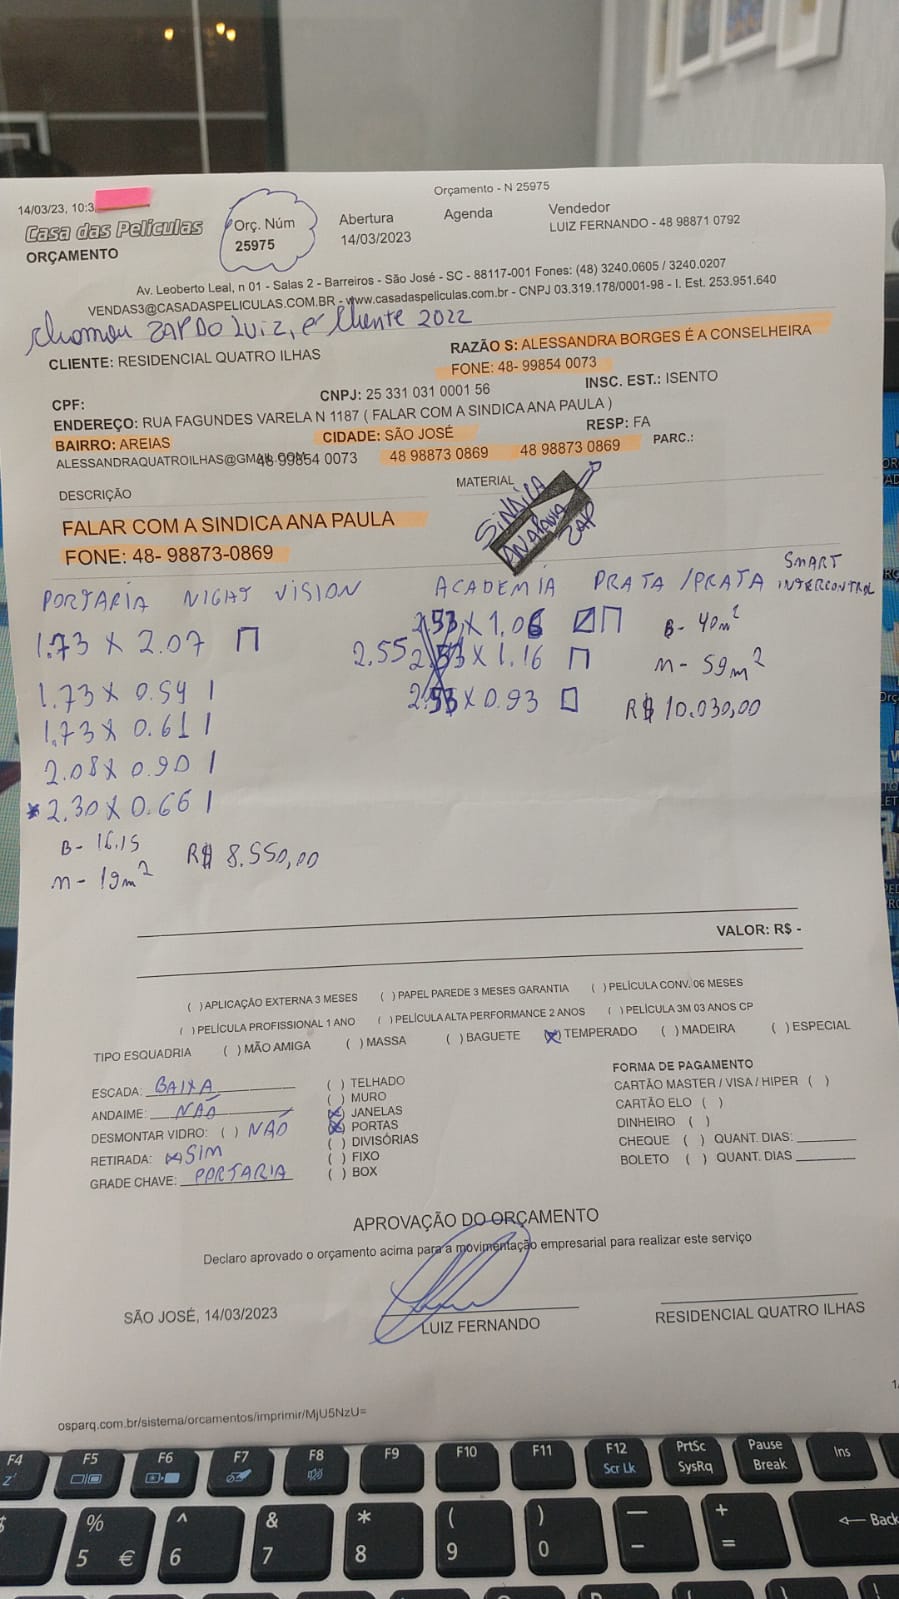 Orçamento - N 25975
14/03/23, 10:3
Casa das Películas
ORÇAMENTO
Orç. Núm
25975
Abertura
14/03/2023
Agenda
Vendedor
LUIZ FERNANDO - 48 98871 0792
Av. Leoberto Leal, n 01 - Salas 2 - Barreiros - São José - SC - 88117-001 Fones: (48) 3240.0605 / 3240.0207
VENDAS3@CASADASPELICULAS.COM.BR - www.casadaspeliculas.com.br - CNPJ 03.319.178/0001-98 - I. Est. 253.951.640
chamou ZAP DO LUIZ, é cliente 2022
CLIENTE: RESIDENCIAL QUATRO ILHAS
RAZÃO S: ALESSANDRA BORGES É A CONSELHEIRA
FONE: 48- 99854 0073
CPF:
CNPJ: 25 331 031 0001 56
INSC. EST.: ISENTO
ENDEREÇO: RUA FAGUNDES VARELA N 1187 ( FALAR COM A SINDICA ANA PAULA )
BAIRRO: AREIAS
CIDADE: SÃO JOSÉ
RESP: FA
ALESSANDRAQUATROILHAS@GMAIL.COM
48 99854 0073
48 98873 0869
48 98873 0869
PARC.:
DESCRIÇÃO
MATERIAL
SINDICA
ANA PAULA
ZAP
FALAR COM A SINDICA ANA PAULA
FONE: 48- 98873-0869
PORTARIA NIGHT VISION
ACADEMIA PRATA/PRATA SMART INTERCONTROL
1.73 X 2.07
1.73 X 0.59 1
1.73 X 0.61 1
2.08 X 0.90 1
* 2.30 X 0.66 1
B- 16.15
M- 19m²
R$ 8.550,00
2.53 X 1.06
2.55 2.53 X 1.16
2.53 X 0.93
B- 40m²
M- 59m²
R$ 10.030,00
VALOR: R$ -
( ) APLICAÇÃO EXTERNA 3 MESES ( ) PAPEL PAREDE 3 MESES GARANTIA ( ) PELÍCULA CONV. 06 MESES
( ) PELÍCULA PROFISSIONAL 1 ANO ( ) PELÍCULA ALTA PERFORMANCE 2 ANOS ( ) PELÍCULA 3M 03 ANOS CP
TIPO ESQUADRIA ( ) MÃO AMIGA ( ) MASSA ( ) BAGUETE (X) TEMPERADO ( ) MADEIRA ( ) ESPECIAL
ESCADA: BAIXA
ANDAIME: NÃO
DESMONTAR VIDRO: ( ) NÃO
RETIRADA: X SIM
GRADE CHAVE: PORTARIA
( ) TELHADO
( ) MURO
(X) JANELAS
(X) PORTAS
( ) DIVISÓRIAS
( ) FIXO
( ) BOX
FORMA DE PAGAMENTO
CARTÃO MASTER / VISA / HIPER ( )
CARTÃO ELO ( )
DINHEIRO ( )
CHEQUE ( ) QUANT. DIAS:
BOLETO ( ) QUANT. DIAS
APROVAÇÃO DO ORÇAMENTO
Declaro aprovado o orçamento acima para a movimentação empresarial para realizar este serviço
SÃO JOSÉ, 14/03/2023
LUIZ FERNANDO
RESIDENCIAL QUATRO ILHAS
1/
osparq.com.br/sistema/orcamentos/imprimir/MjU5NzU=
F4 F5 F6 F7 F8 F9 F10 F11 F12 PrtSc Pause Ins
Scr Lk SysRq Break
% ^ & * ( ) — + Back
5 € 6 7 8 9 0 - =